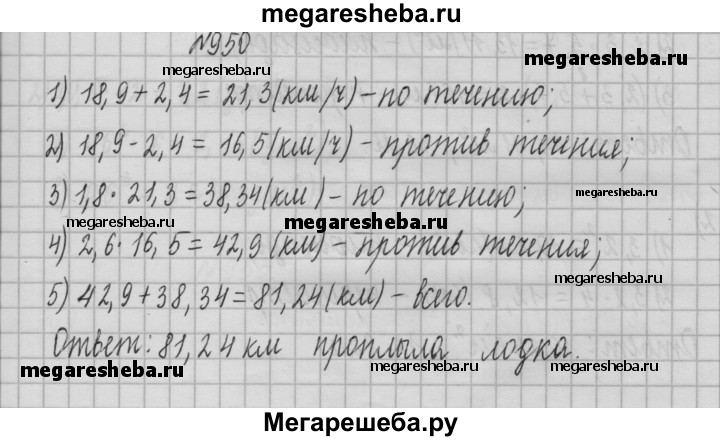 megaresheba.ru
№950
megaresheba.ru megaresheba.ru
1) 18,9 + 2,4 = 21,3 (км/ч) – по течению;
2) 18,9 - 2,4 = 16,5 (км/ч) – против течения;
megaresheba.ru
3) 1,8 · 21,3 = 38,34 (км) – по течению;
megaresheba.ru megaresheba.ru
4) 2,6 · 16,5 = 42,9 (км) – против течения;
megaresheba.ru
5) 42,9 + 38,34 = 81,24 (км) – всего.
Ответ: 81,24 км проплыла лодка.
megaresheba.ru megaresheba.ru megaresheba.ru
Мегарешеба.ру